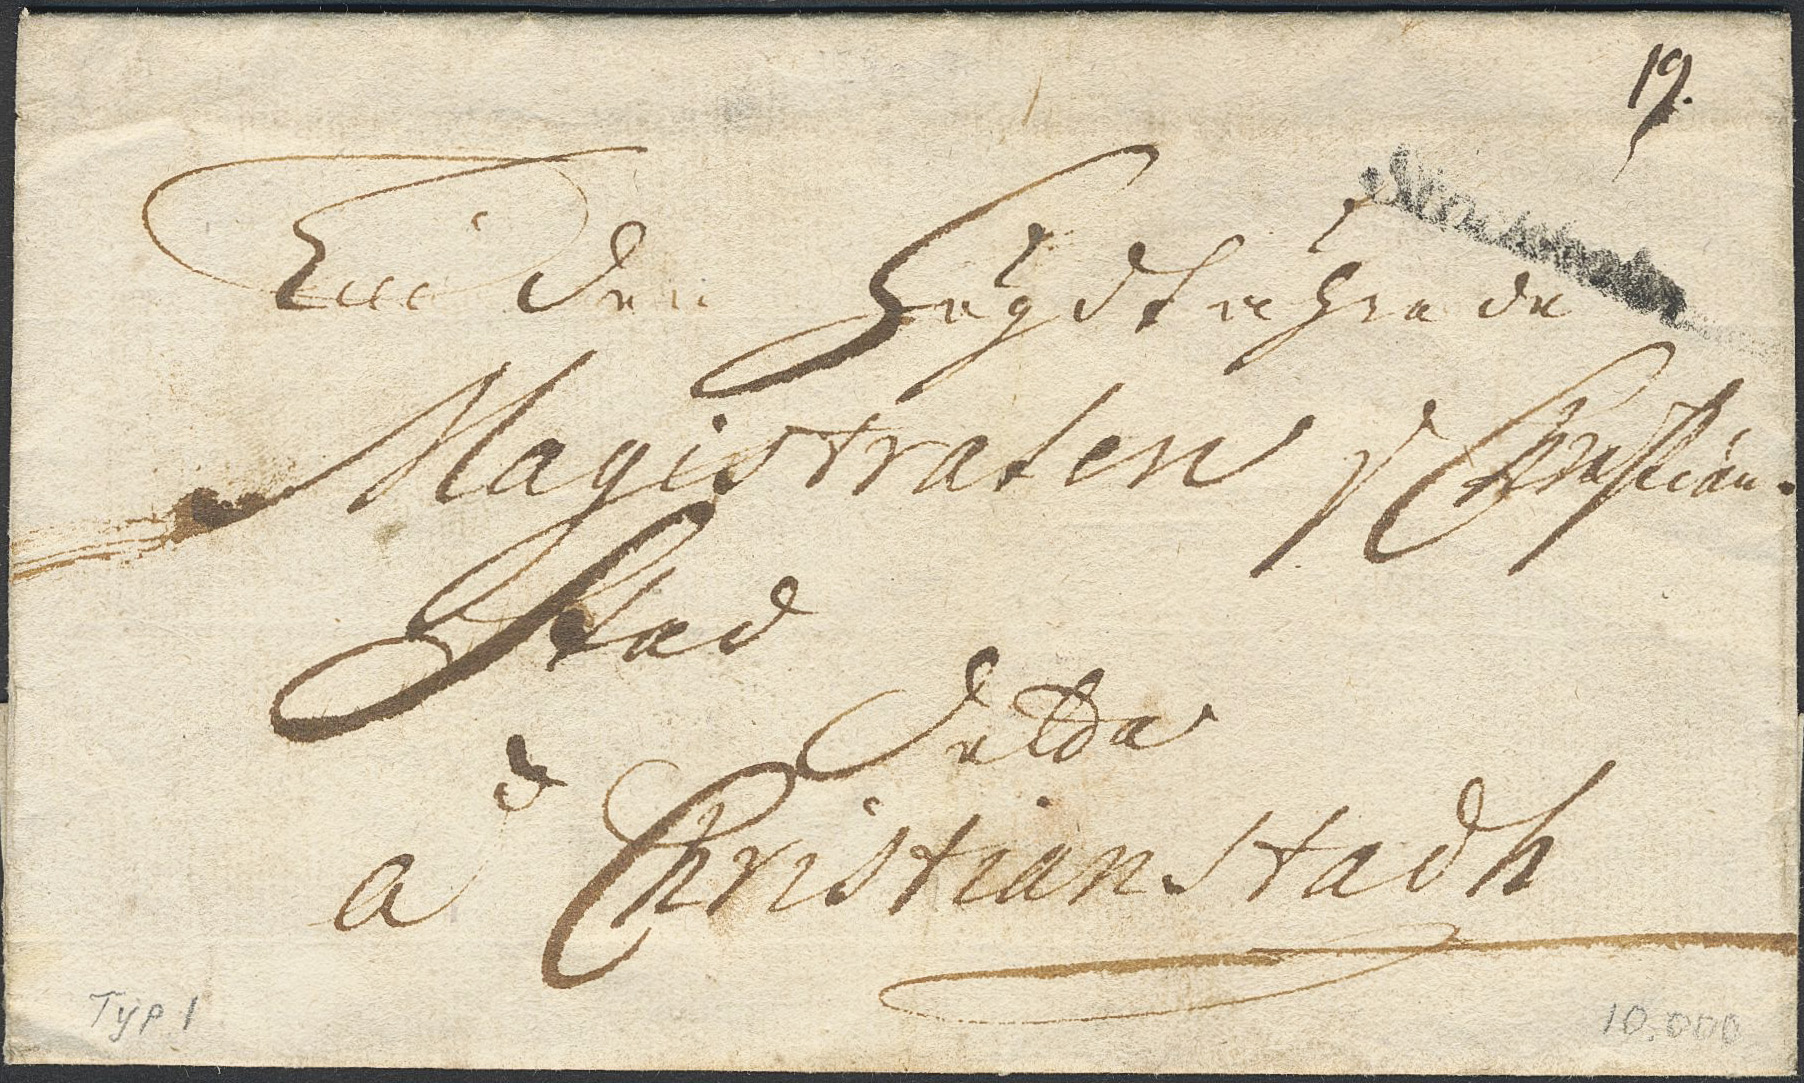 19.
Till den Högdtährade
Magistraten i Christian-
Stad
Detta
a Christianstadh
Typ 1
10.000